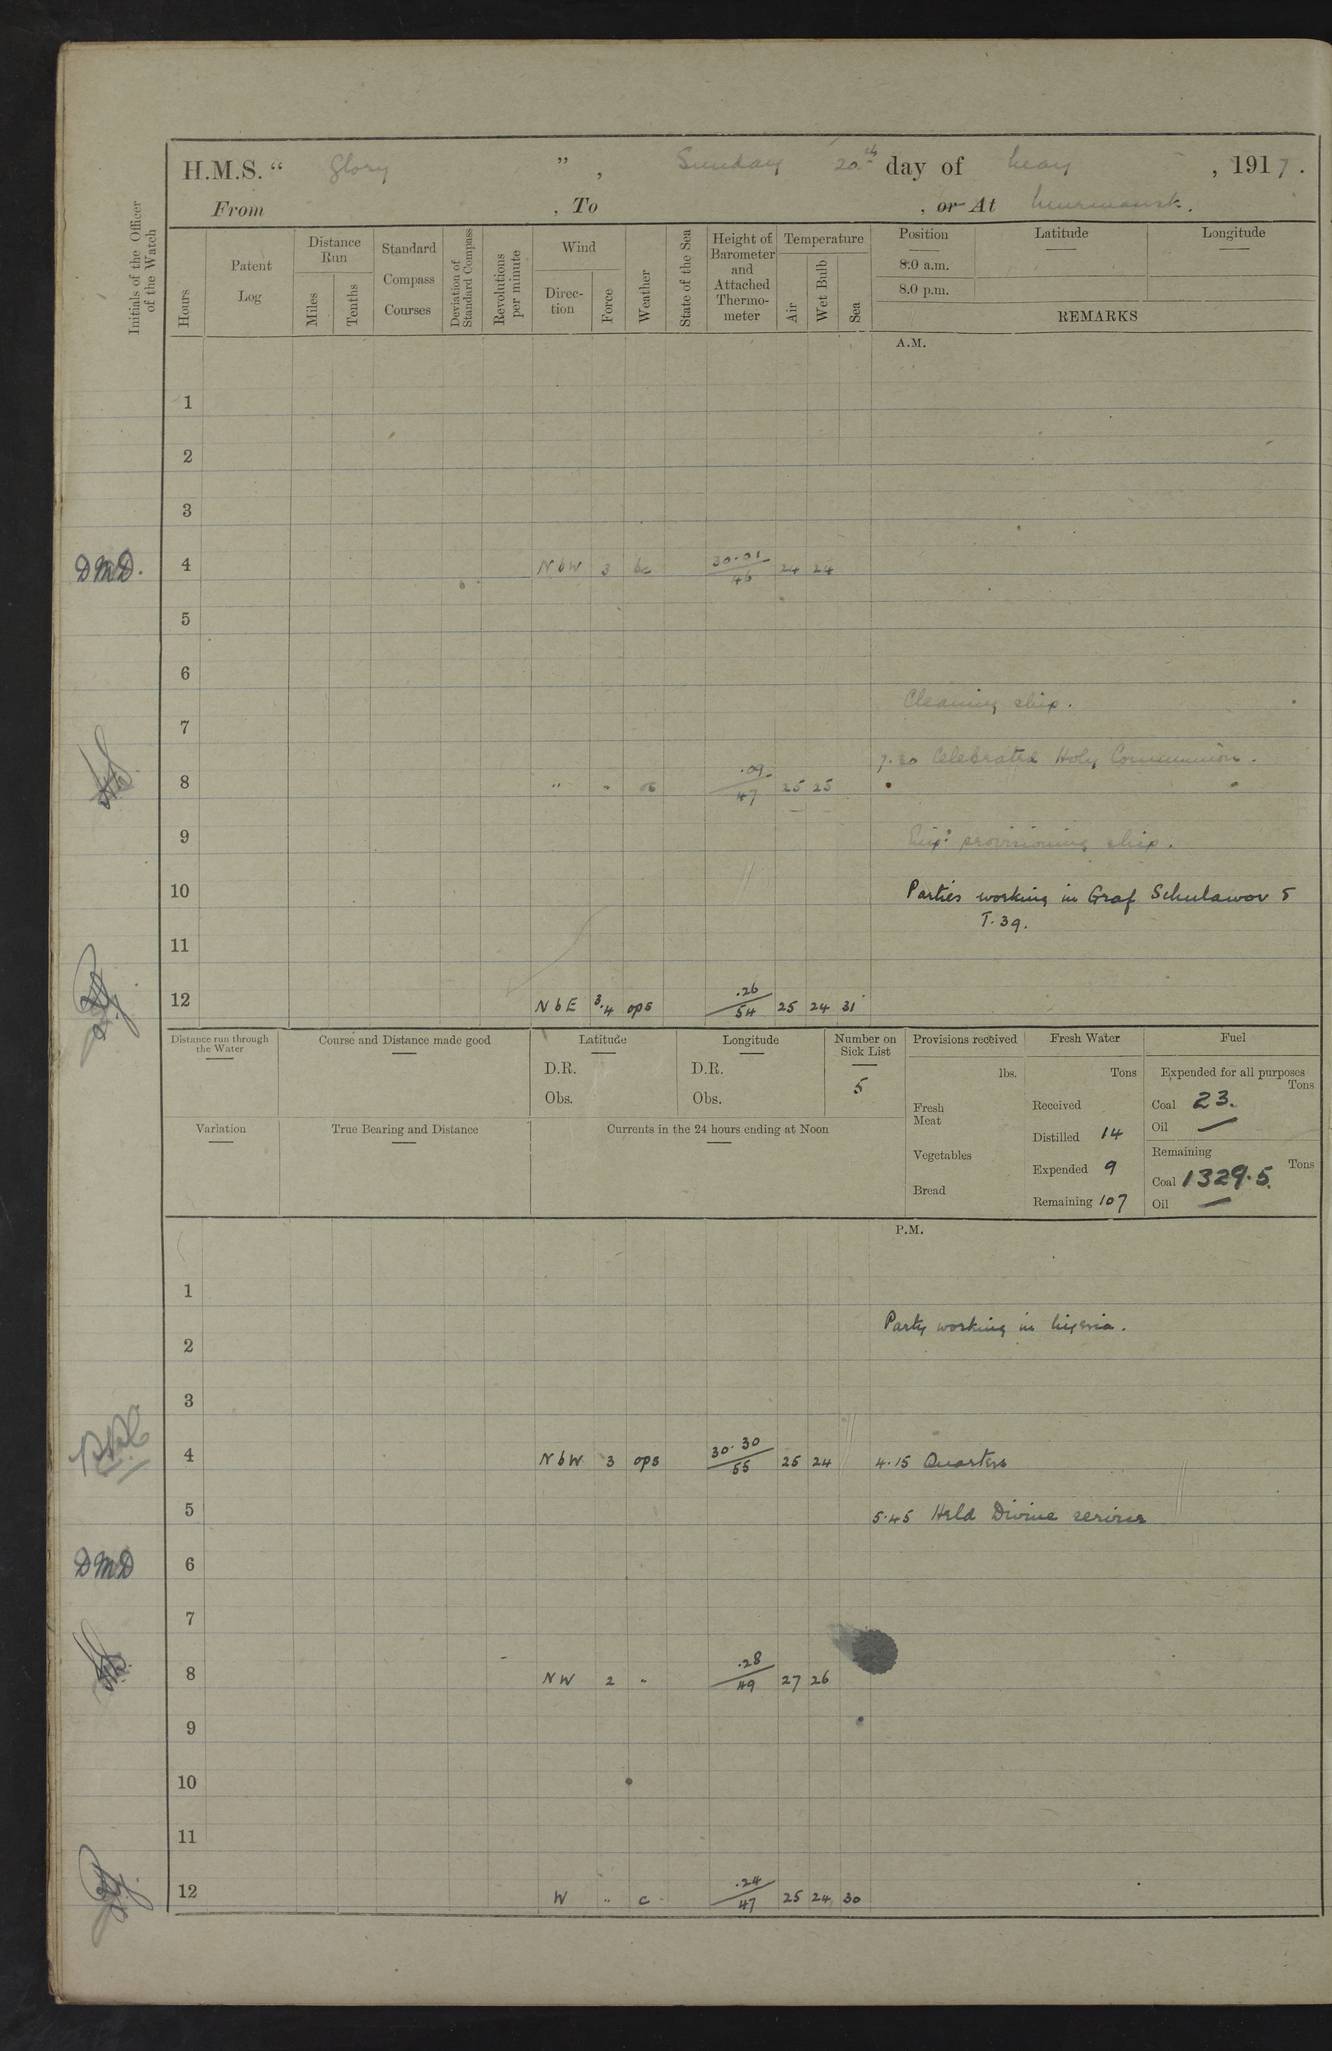 H.M.S. " Glory ", Sunday 20th day of May, 1917.
From , To , or At Murmansk.
Initials of the Officer of the Watch
Hours
Patent Log
Distance Run
Miles
Tenths
Standard Compass Courses
Deviation of Standard Compass
Revolutions per minute
Wind
Direction
Force
Weather
State of the Sea
Height of Barometer and Attached Thermometer
Temperature
Air
Wet Bulb
Sea
Position
Latitude
Longitude
8.0 a.m.
8.0 p.m.
REMARKS
A.M.
1
2
3
DMD. 4 NbW 3 bc 30.01/46 24 24
5
6
Cleaning ship.
7
7.30 Celebrated Holy Communion.
8 " " .09/47 25 25
9 provisioning ship.
10 Parties working in Graf Schulawov &
T.39.
11
12 NbE 3.4 ops .26/54 25 24 31
Distance run through the Water
Course and Distance made good
Latitude
D.R.
Obs.
Longitude
D.R.
Obs.
Number on Sick List
5
Provisions received
lbs.
Fresh Meat
Vegetables
Bread
Fresh Water
Tons
Received
Distilled 14
Expended 9
Remaining 107
Fuel
Expended for all purposes
Tons
Coal 23.
Oil —
Remaining
Tons
Coal 1329.5.
Oil —
Variation
True Bearing and Distance
Currents in the 24 hours ending at Noon
P.M.
1
Party working in Nigeria.
2
3
4 NbW 3 ops 30.30/55 25 24 4.15 Quarters
5 5.45 Held Divine service
DMD 6
7
8 NW 2 " .28/49 27 26
9
10
11
12 W " c .24/47 25 24 30